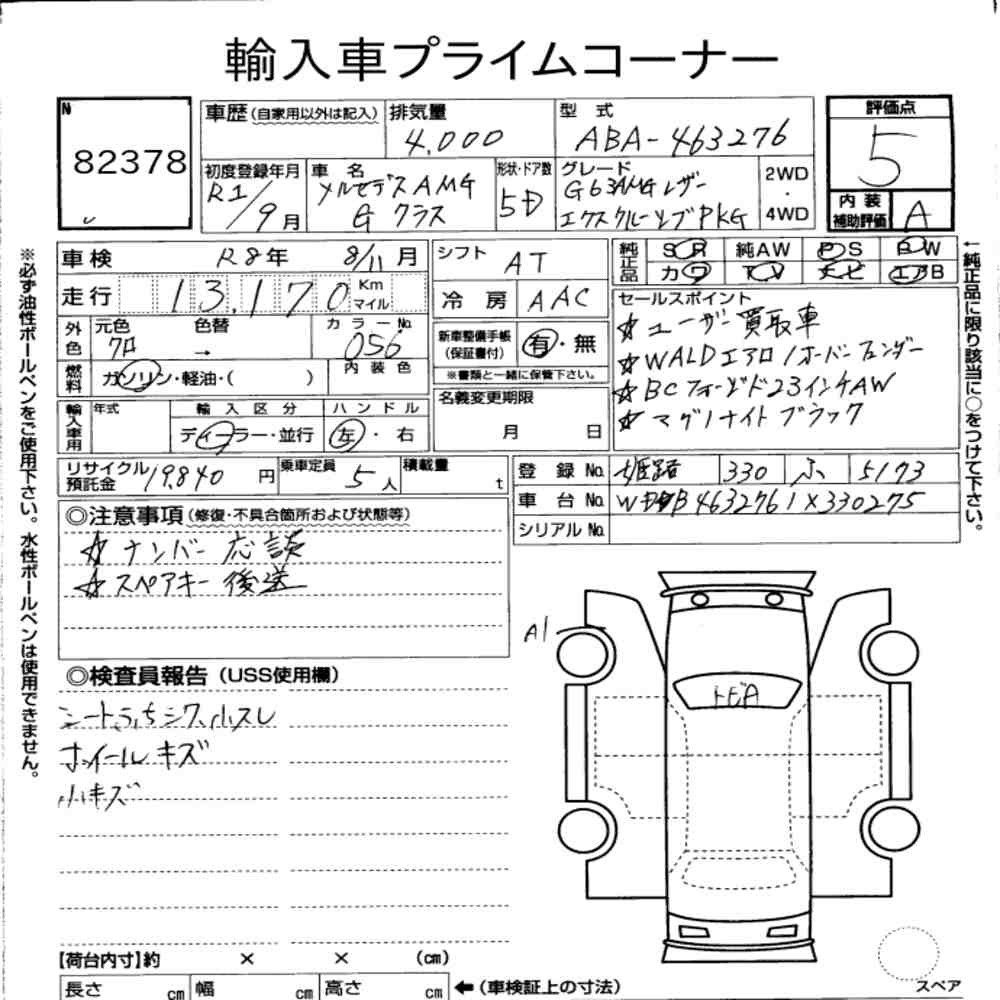 輸入車プライムコーナー
N
82378
車歴(自家用以外は記入)
排気量
4,000
型 式
ABA-463276
評価点
5
内装
補助評価
A
初度登録年月
R1/9月
車 名
メルセデスAMG
G クラス
形状・ドア数
5D
グレード
G63AMGレザー
エクスクルーシブPKG
2WD
・
4WD
車検
R8年 8/11月
シフト
AT
純正品
SR 純AW PS PW
カワ TV ナビ エアB
走行
13,170
Km
マイル
冷 房
AAC
セールスポイント
☆ユーザー買取車
☆WALDエアロ/オーバーフェンダー
☆BCフォージド23インチAW
☆マグノナイトブラック
外色
元色
クロ
色替
→
カラーNo.
056
新車整備手帳
(保証書付)
有・無
※書類と一緒に保管下さい。
燃料
ガソリン・軽油・( )
内 装 色
輸入車用
年式
輸 入 区 分
ディーラー・並行
ハ ン ド ル
左 ・ 右
名義変更期限
月 日
リサイクル
預託金
19,840円
乗車定員
5人
積載量
t
登 録 No.
姫路
330
ふ
5173
車 台 No.
WDB4632761X330275
シリアル No.
◎注意事項(修復・不具合箇所および状態等)
☆ ナンバー応談
☆スペアキー後送
◎検査員報告(USS使用欄)
ホイールキズ
小キズ
A1
トビA
スペア
【荷台内寸】約 × × (cm)
長さ cm
幅 cm
高さ cm
←(車検証上の寸法)
※必ず油性ボールペンをご使用下さい。水性ボールペンは使用できません。
←純正品に限り該当に○をつけて下さい。